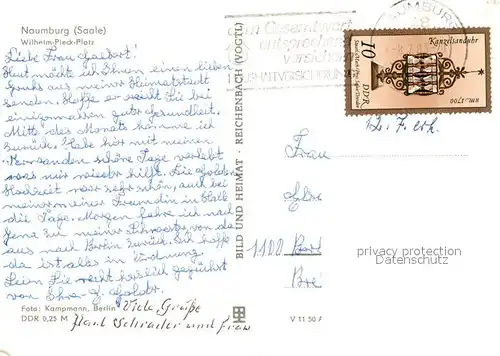 Naumburg (Saale)
Wilhelm-Pieck-Platz
Liebe Frau
Heut möchte ich Ihnen einen lieben
Gruß aus meiner Heimatstadt
senden. Hoffe er reicht Sie bei
einigermaßen guter Gesundheit.
Mitte des Monats komme ich
zurück. Habe hier mit meinen
Verwandten schöne Tage verlebt
was mir wieder hilft. Die goldene
Hochzeit war sehr schön, auch bei
meiner Freundin in Halle
die Tage. Morgen fahre ich nach
Jena zu meiner Schwester, von da
aus nach Berlin zurück. Ich hoffe
da ist alles in Ordnung.
Seien Sie recht herzlich gegrüßt
von Ihrer
Viele Grüße
Paul Schrader und Frau
Foto: Kampmann, Berlin
DDR 0,25 M
BILD UND HEIMAT · REICHENBACH (VOGTL)
V 11 50 A
NAUMBURG
Gesamtwert
entsprechend
versichern
HAUSHALTVERSICHERUNG
Kanzelsanduhr
10
DDR
um 1700
Frau
1100
privacy protection
Datenschutz